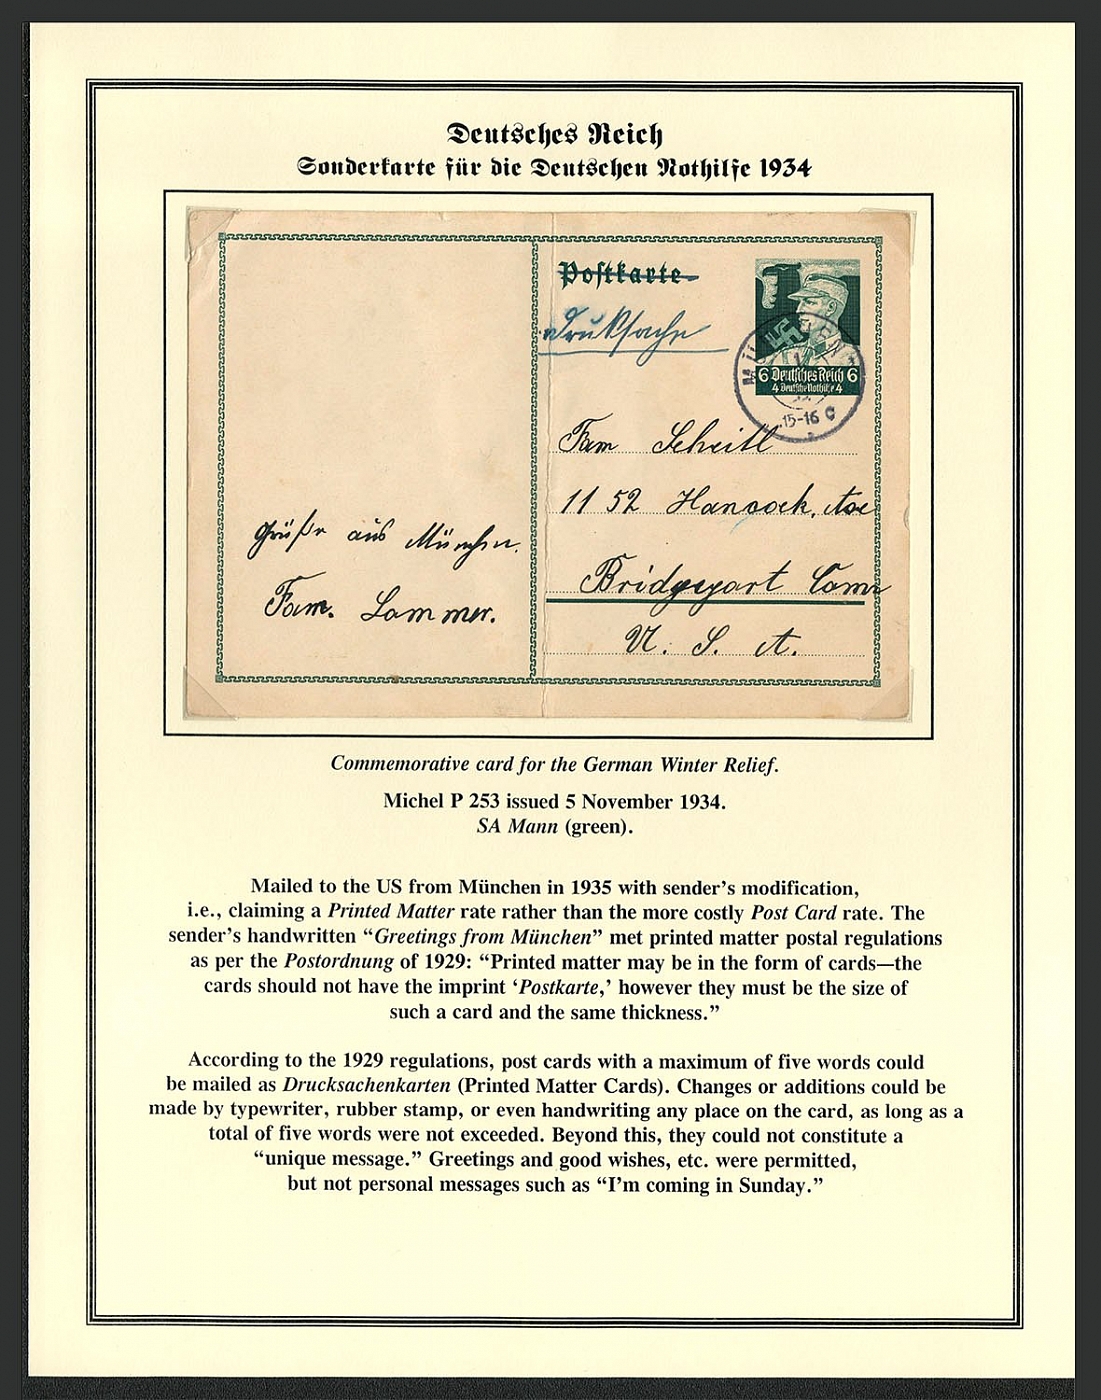 Deutsches Reich
Sonderkarte für die Deutschen Nothilfe 1934
Postkarte
Drucksache
6 Deutsches Reich 6
4 Deutsche Nothilfe 4
15-16
Fam Scheitl
11 52 Hancock, Ave
Bridgeport Conn
U. S. A.
Grüße aus München.
Fam. Lammer.
Commemorative card for the German Winter Relief.
Michel P 253 issued 5 November 1934.
SA Mann (green).
Mailed to the US from München in 1935 with sender’s modification,
i.e., claiming a Printed Matter rate rather than the more costly Post Card rate. The
sender’s handwritten “Greetings from München” met printed matter postal regulations
as per the Postordnung of 1929: “Printed matter may be in the form of cards—the
cards should not have the imprint ‘Postkarte,’ however they must be the size of
such a card and the same thickness.”
According to the 1929 regulations, post cards with a maximum of five words could
be mailed as Drucksachenkarten (Printed Matter Cards). Changes or additions could be
made by typewriter, rubber stamp, or even handwriting any place on the card, as long as a
total of five words were not exceeded. Beyond this, they could not constitute a
“unique message.” Greetings and good wishes, etc. were permitted,
but not personal messages such as “I’m coming in Sunday.”